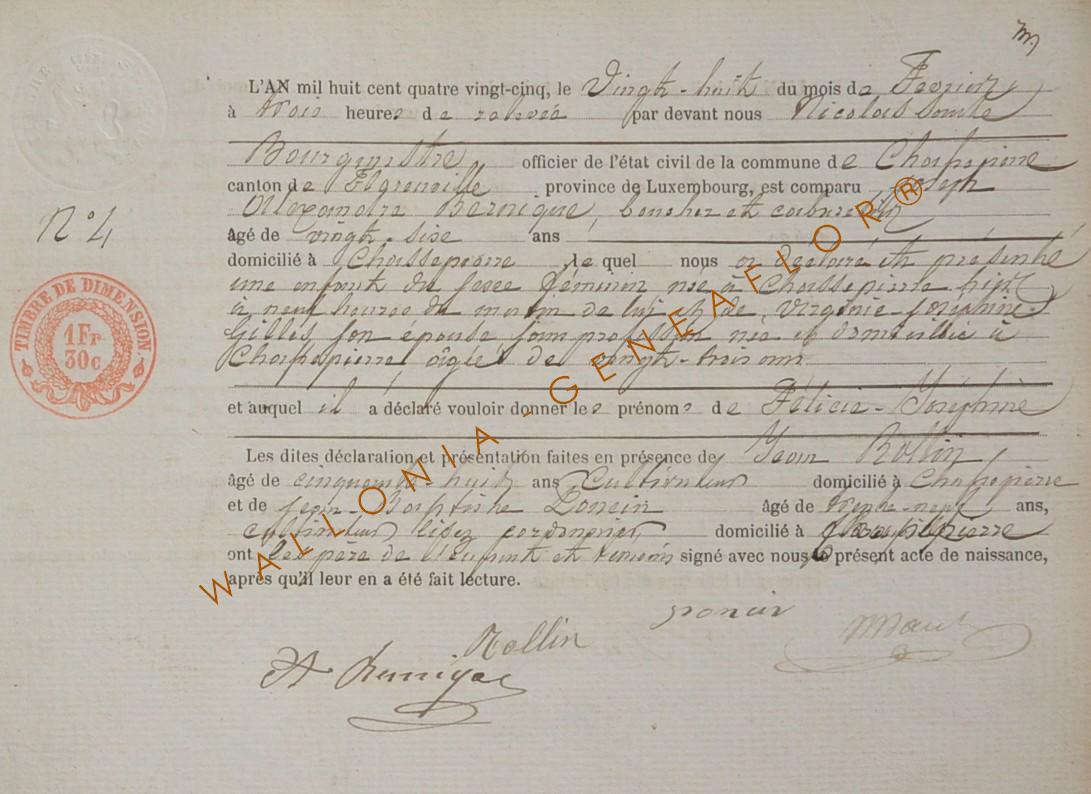 L'AN mil huit cent quatre vingt-cinq, le Vingt-huit du mois de Fevrier
à trois heures de relevée par devant nous Nicolas
Bourgmestre officier de l'état civil de la commune de Chassepierre
canton de province de Luxembourg, est comparu Joseph
Alexandre boucher et cabaretier
âgé de vingt-six ans
N° 4
domicilié à Chassepierre lequel nous a déclaré et présenté
une enfant du sexe féminin née à Chassepierre hier
à neuf heures du matin de lui et de Virginie-Joséphine
Gilles son épouse sans profession née et domiciliée à
Chassepierre âgée de vingt-trois ans
TIMBRE DE DIMENSION.
1 Fr
30c
et auquel il a déclaré vouloir donner les prénoms de Félicie-Joséphine
Les dites déclaration et présentation faites en présence de Jean Rollin
âgé de cinquante-huit ans Cultivateur domicilié à Chassepierre
et de Jean-Baptiste Poncin âgé de trente-neuf ans,
cultivateur lisez cordonnier domicilié à Chassepierre
ont les père de l'enfant et témoins signé avec nous le présent acte de naissance,
après qu'il leur en a été fait lecture.
Poncin
Rollin
WALLONIA - GENEAFLOR®